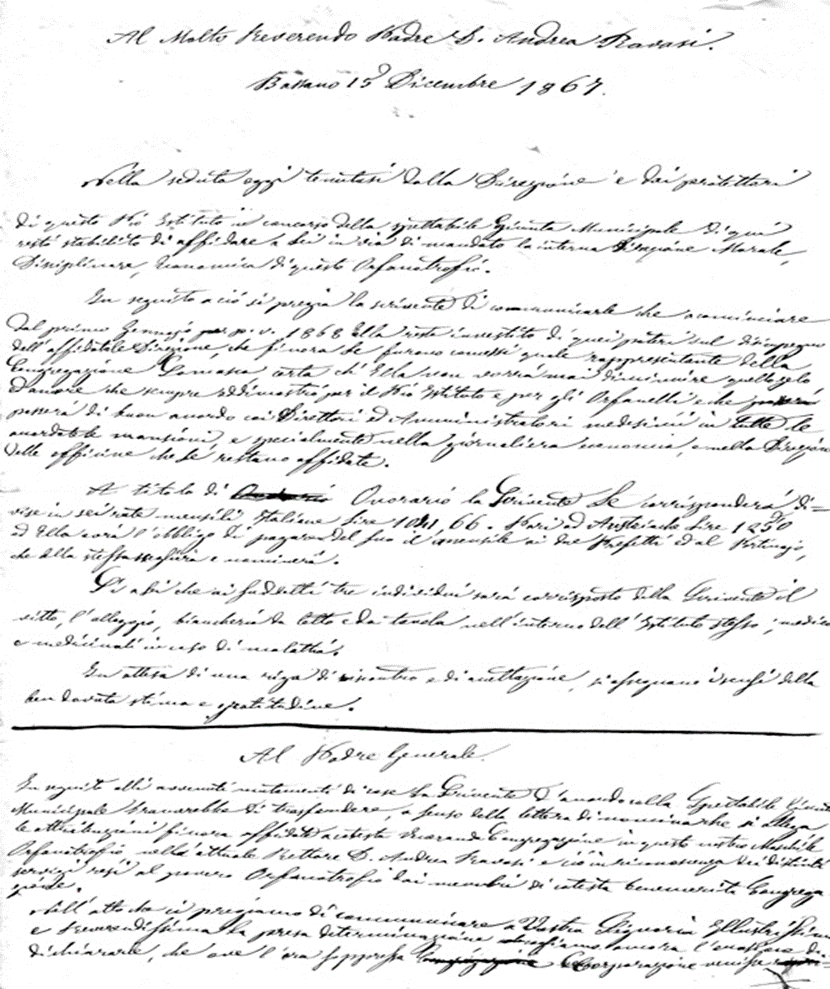 Al Molto Reverendo Padre D. Andrea Ravasi.
Bassano 15 Dicembre 1867.
Nella seduta oggi tenutasi dalla Direzione e dai protettori
di questo Pio Istituto in concorso della spettabile Giunta Municipale di qui
restò stabilito di affidare a Lei in via di mandato la interna Direzione Morale,
Disciplinare, Economica di questo Orfanotrofio.
In seguito a ciò si pregia la scrivente di comunicarle che a cominciare
dal primo Gennajo p. v. 1868 Ella resta investito di quei poteri sul disimpegno
dell'affidatale Direzione, che finora Le furono concessi quale rappresentante della
Congregazione Somasca certa ch'Ella non vorrà mai diminuire quello zelo
ed amore che sempre addimostrò per il Pio Istituto e per gli Orfanelli e che
passerà di buon accordo coi Direttori ed Amministratori medesimi in tutte le
accordatele mansioni, e specialmente nella giornaliera economia, e nella Direzione
delle officine che Le restano affidate.
A titolo di Onorario la Scrivente Le corrisponderà di=
vise in sei rate mensili Italiane Lire 66. Pari ad Austriache Lire
ed Ella avrà l'obbligo di pagare del suo il mensile ai due Prefetti ed al Portinajo,
che alla stessa e nominerà.
Si a bi che ai suddetti tre individui sarà corrisposto dalla Scrivente il
vitto, l'alloggio, biancheria da letto e da tavola nell'interno dell'Istituto stesso, medico
e medicinali in caso di malattia.
In attesa di una riga di riscontro e di accettazione, si assegnano i sensi della
ben dovuta stima e gratitudine.
Al Padre Generale.
In seguito alli avvenuti mutamenti di cose La Scrivente d'accordo colla Spettabile Giunta
Municipale bramerebbe di trasfondere, a senso della lettera di nomina che si allega
le attribuzioni finora affidate a cotesta Veneranda Congregazione in questo nostro Maschile
Orfanotrofio nell'attuale Rettore D. Andrea Ravasi e ciò in riconoscenza dei distinti
servizi resi al povero Orfanotrofio dai membri di cotesta benemerita Congrega
zione.
Nell'atto che ci pregiamo di comunicare a Vostra Signoria Illustrissima
e Reverendissima la presa determinazione ancora l'onore di
dichiarare, che ove l'ora soppressa Corporazione venisse